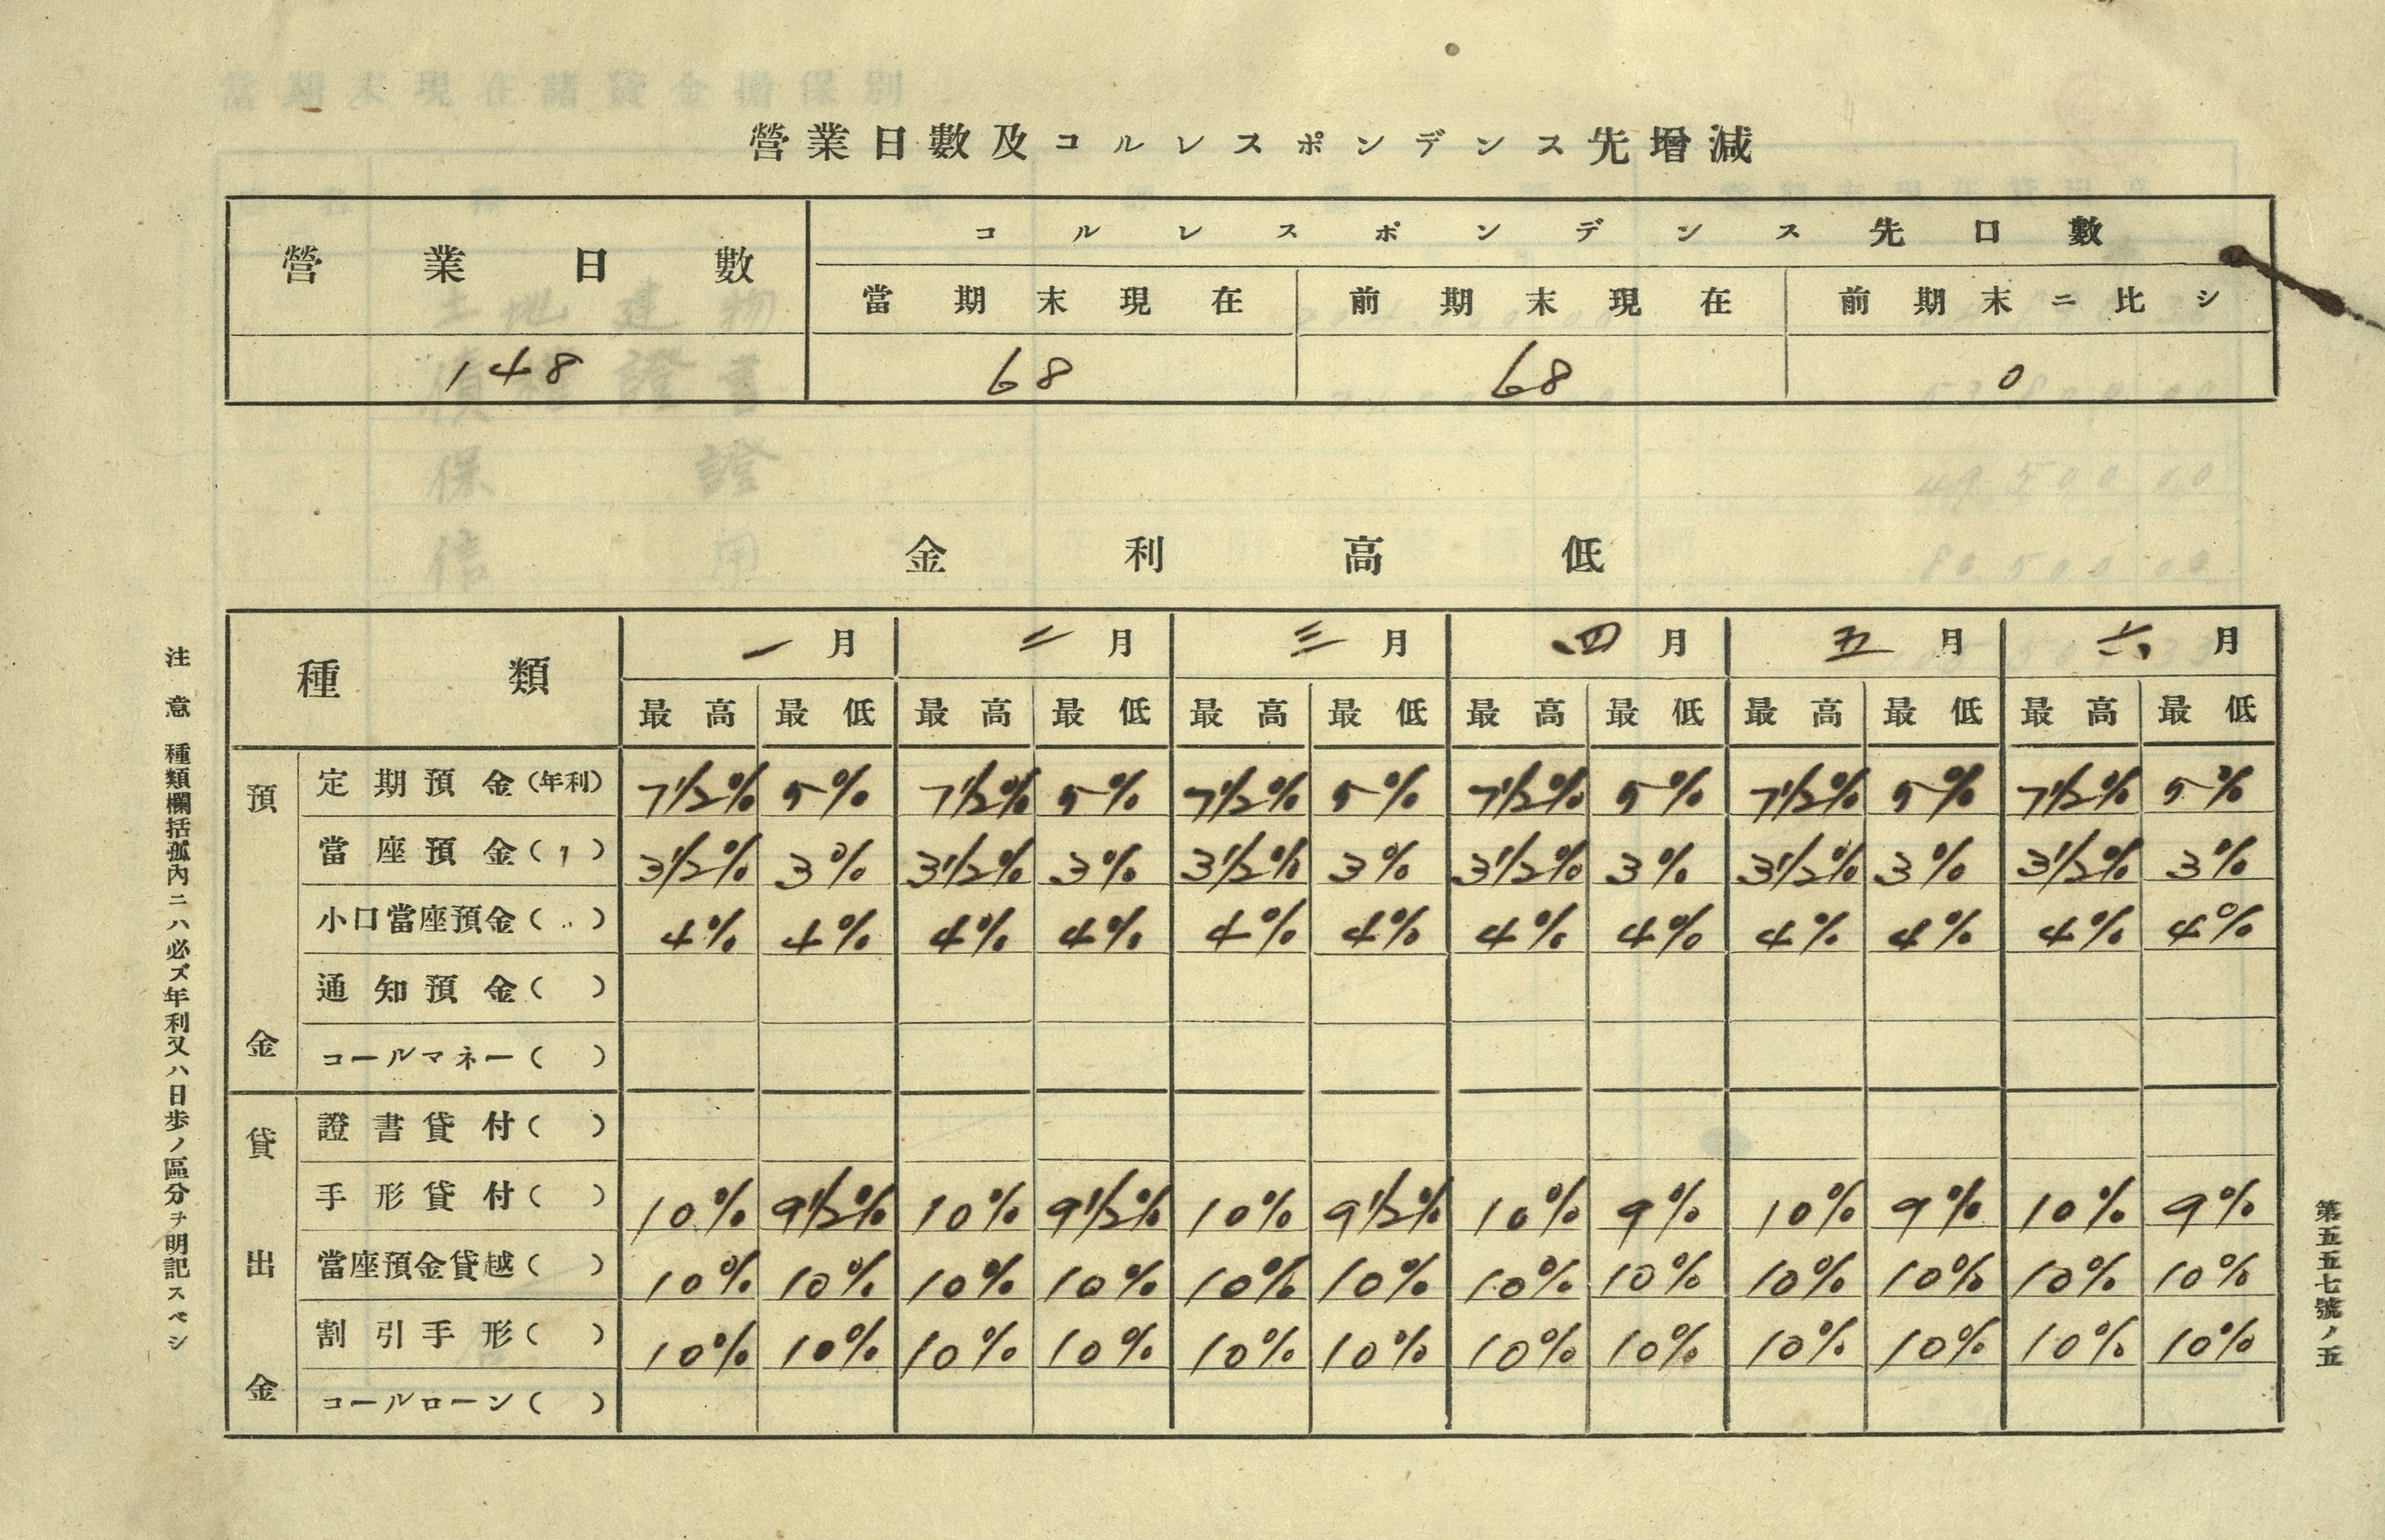 營業日數及コルレスポンデンス先增減
營業日數 コルレスポンデンス先口數
當期末現在 前期末現在 前期末ニ比シ
148 68 68 0
金利高低
種類 一月 二月 三月 四月 五月 六月
最高 最低 最高 最低 最高 最低 最高 最低 最高 最低 最高 最低
預金
定期預金(年利) 7 1/2% 5% 7 1/2% 5% 7 1/2% 5% 7 1/2% 5% 7 1/2% 5% 7 1/2% 5%
當座預金(〃) 3 1/2% 3% 3 1/2% 3% 3 1/2% 3% 3 1/2% 3% 3 1/2% 3% 3 1/2% 3%
小口當座預金(〃) 4% 4% 4% 4% 4% 4% 4% 4% 4% 4% 4% 4%
通知預金( )
コールマネー( )
貸出金
證書貸付( )
手形貸付( ) 10% 9 1/2% 10% 9 1/2% 10% 9 1/2% 10% 9% 10% 9% 10% 9%
當座預金貸越( ) 10% 10% 10% 10% 10% 10% 10% 10% 10% 10% 10% 10%
割引手形( ) 10% 10% 10% 10% 10% 10% 10% 10% 10% 10% 10% 10%
コールローン( )
注意 種類欄括孤內ニハ必ズ年利又ハ日歩ノ區分ヲ明記スベシ
第五五七號ノ五